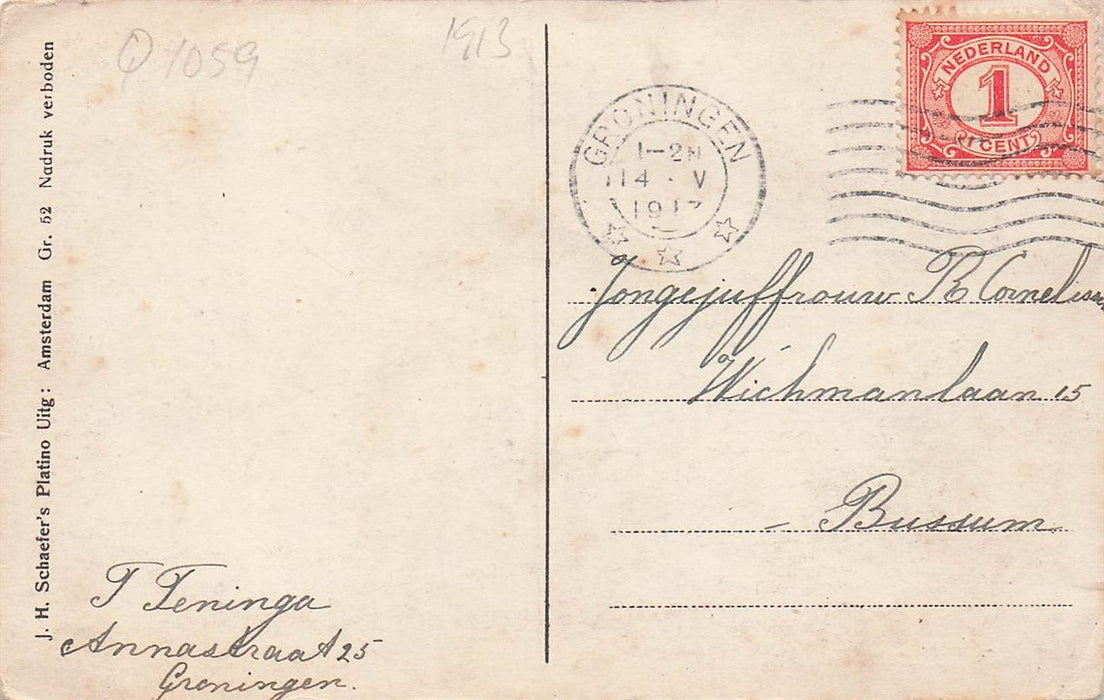 Q 1059
1913
J. H. Schaefer's Platino Uitg: Amsterdam Gr. 52 Nadruk verboden
GRONINGEN
1-2N
14 · V
NEDERLAND
1
1 CENT
Jongejuffrouw R Cornelissen
Wichmanlaan 15
- Bussum
T Teninga
Annastraat 25
Groningen.